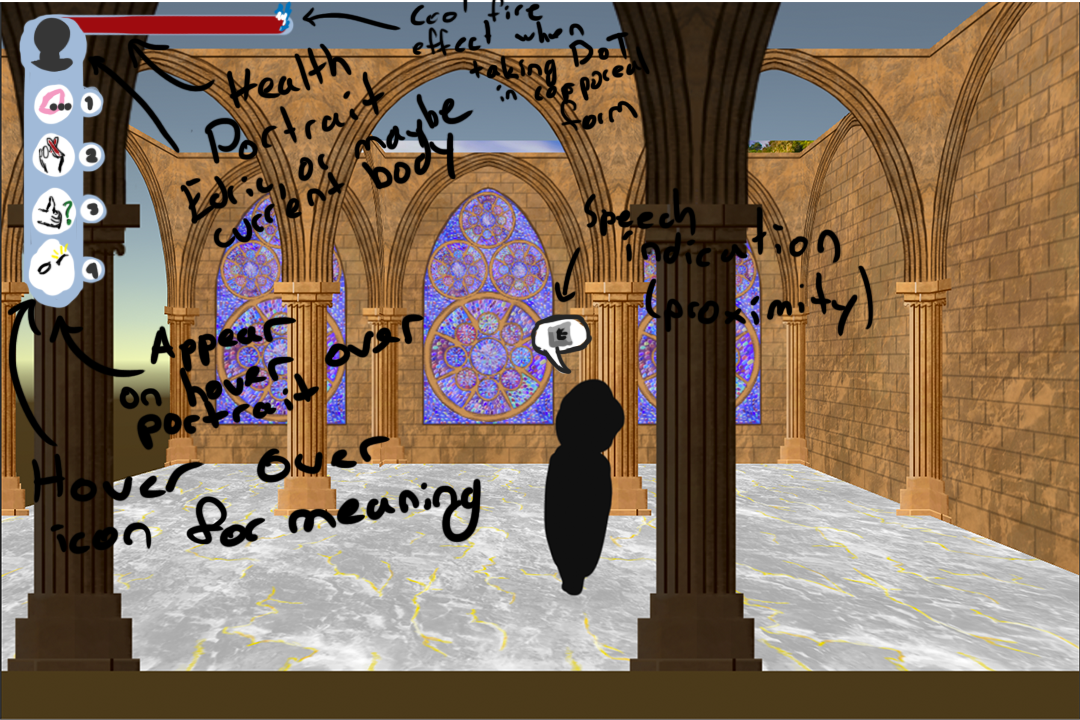 Cool fire
effect when
taking DoT
in corporeal
form
Health
Portrait
Edric, or maybe
current body
1
2
3
4
Speech
indication
(proximity)
E
Appear
on hover over
portrait
Hover over
icon for meaning